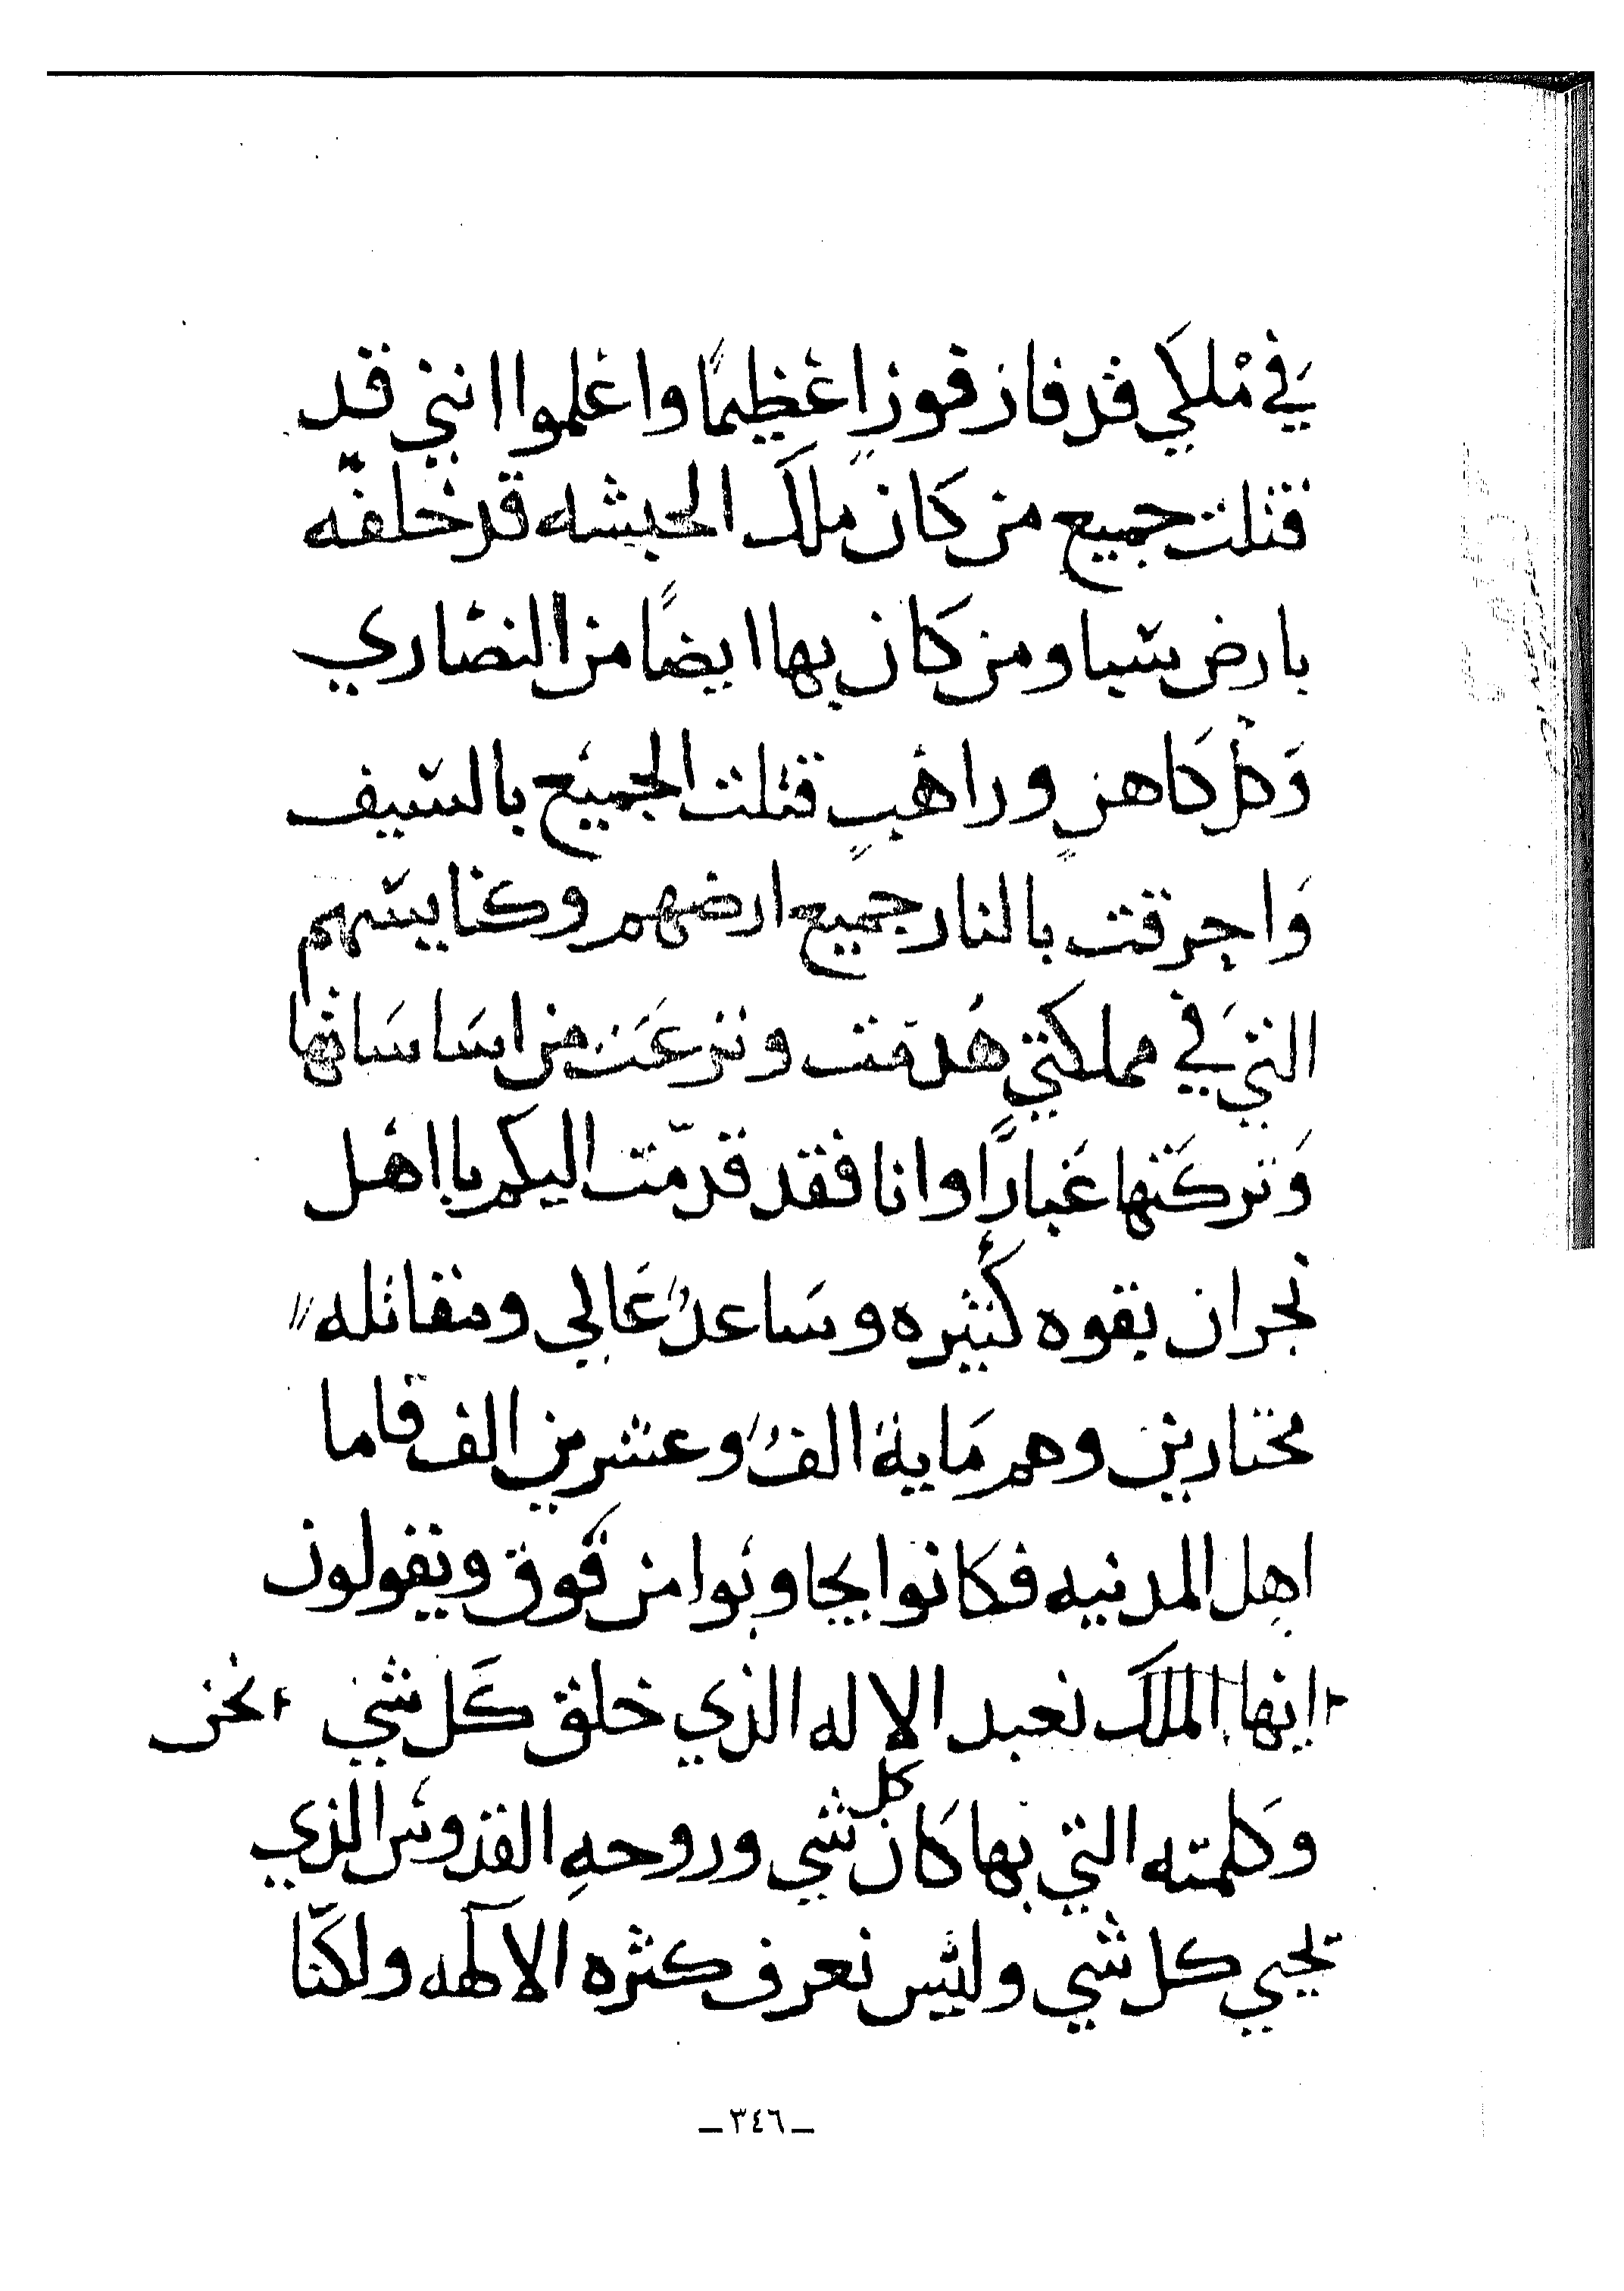 في ملكي قد فاز فوزاً عظيماً واعلموا انني قد
قتلت جميع من كان ملك الحبشه قد خلفه
بارض سبا ومن كان بها ايضاً من النصاري
وَكل كاهنٍ وراهبٍ قتلت الجميع بالسيف
وَاحرقت بالنار جميع ارضهم وكنايسهم
التي في مملكتي هُدمت ونزعَت من اسَاسَاتها
وَتركتها غَباراً وانا فقد قدمّت اليكم يا اهل
نجران بقوه كثيره وسَاعدٌ عَالي ومقاتله //
مختارين وهم مَاية الفٌ وعشرين الف فاما
اهل المدنيه فكانوا يجاوبوا من فَوق ويقولون
ايها الملك نعبد الاله الذي خلق كَل شي نحن
وكلمته التي بها كان كل شي وروحهِ القدوس الذي
يحيي كل شي وليس نعرف كثره الآلهه ولكنّا
ـ ٣٤٦ ـ